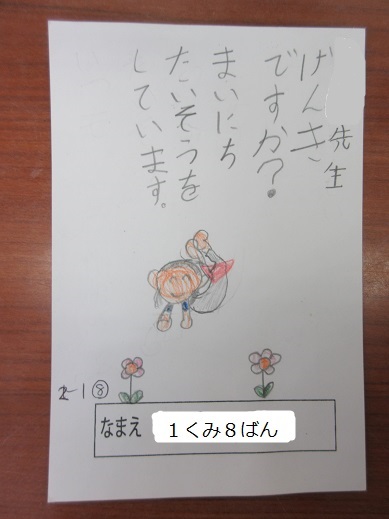 先生
げんき
ですか？
まいにち
たいそうを
しています。
2-1⑧
なまえ １くみ８ばん